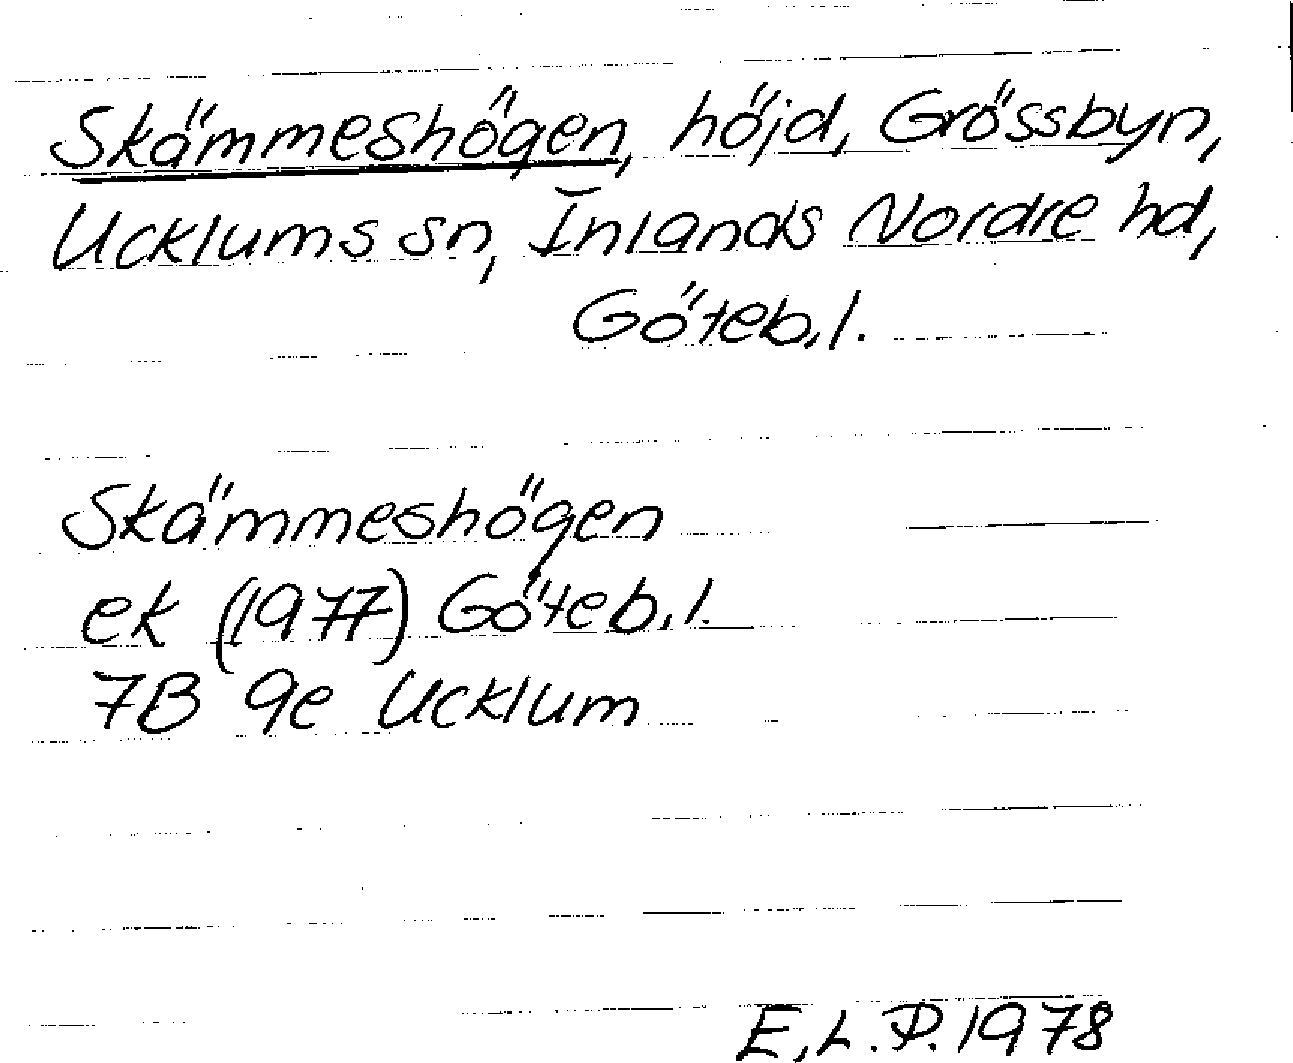 Skämmeshögen, höjd, Grössbyn,
Ucklums sn, Inlands Nordre hd,
Göteb.l.
Skämmeshögen
ek (1977) Göteb.l.
7B 9e Ucklum
E.L.P. 1978